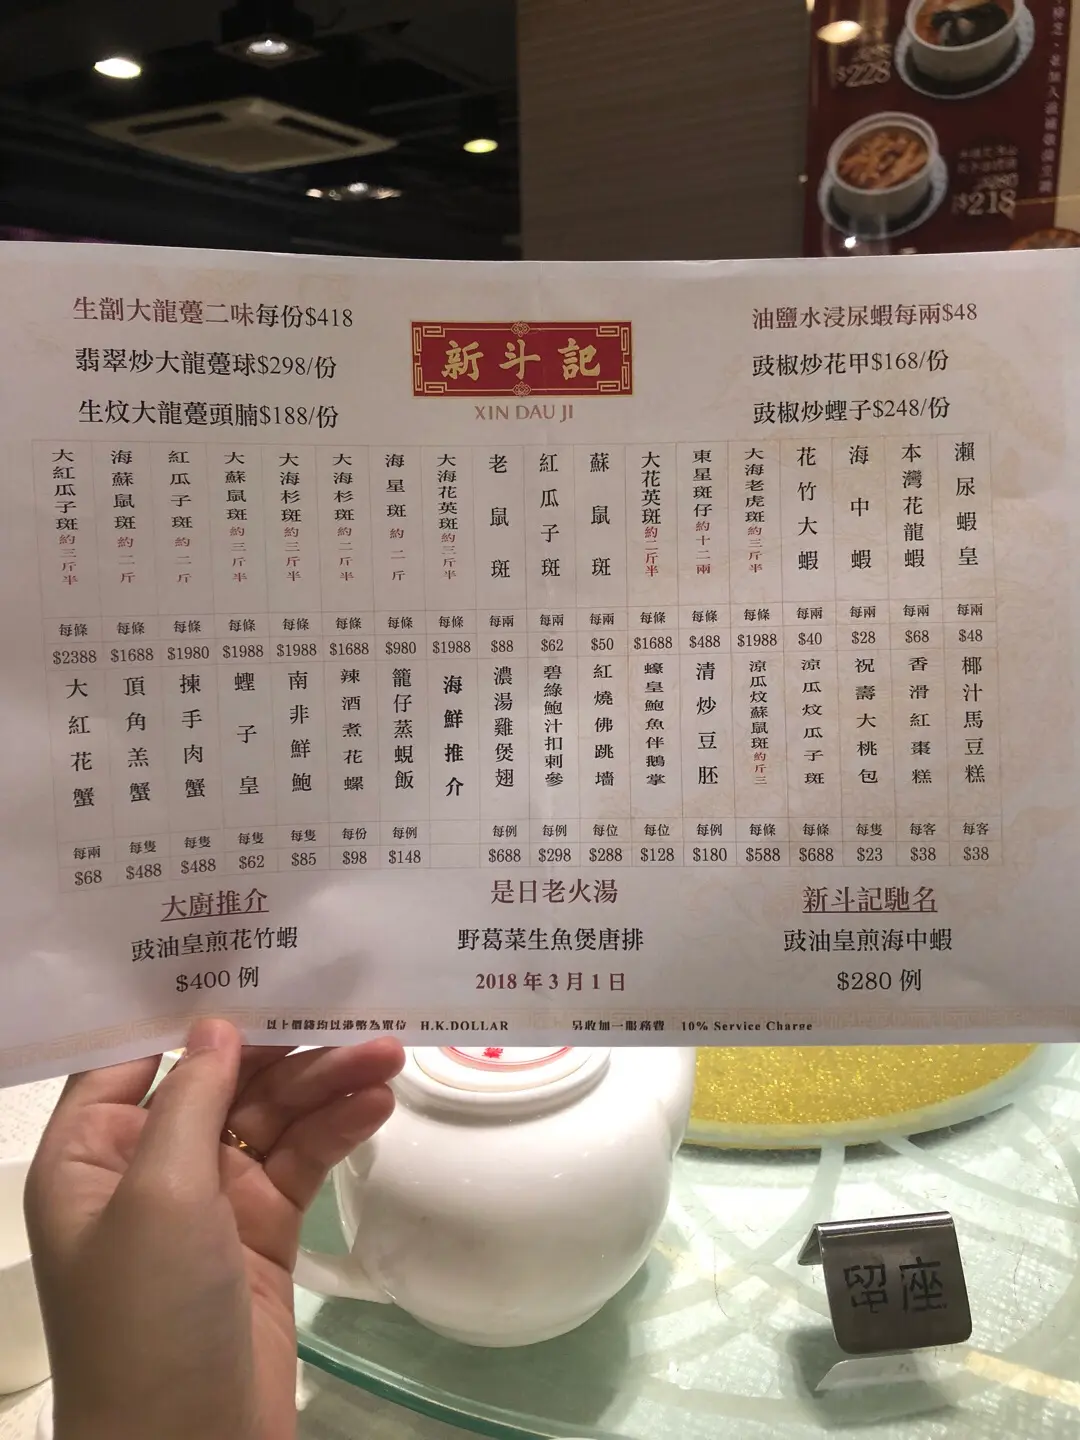 $228
$218
生劏大龍躉二味每份$418
翡翠炒大龍躉球$298/份
生炆大龍躉頭腩$188/份
新斗記
XIN DAU JI
油鹽水浸尿蝦每兩$48
豉椒炒花甲$168/份
豉椒炒蟶子$248/份
瀨尿蝦皇 每兩 $48
本灣花龍蝦 每兩 $68
海中蝦 每兩 $28
花竹大蝦 每兩 $40
大海老虎斑約三斤半 每條 $1988
東星斑仔約十二兩 每條 $488
大花英斑約二斤半 每條 $1688
蘇鼠斑 每兩 $50
紅瓜子斑 每兩 $62
老鼠斑 每兩 $88
大海花英斑約三斤半 每條 $1988
海星斑約二斤 每條 $980
大海杉斑約二斤半 每條 $1688
大海杉斑約三斤半 每條 $1988
大蘇鼠斑約三斤半 每條 $1988
紅瓜子斑約二斤 每條 $1980
海蘇鼠斑約二斤 每條 $1688
大紅瓜子斑約三斤半 每條 $2388
椰汁馬豆糕 每客 $38
香滑紅棗糕 每客 $38
祝壽大桃包 每隻 $23
涼瓜炆瓜子斑 每條 $688
涼瓜炆蘇鼠斑約斤三 每條 $588
清炒豆胚 每例 $180
蠔皇鮑魚伴鵝掌 每位 $128
紅燒佛跳墻 每位 $288
碧綠鮑汁扣刺參 每例 $298
濃湯雞煲翅 每例 $688
海鮮推介
籠仔蒸蜆飯 每例 $148
辣酒煮花螺 每份 $98
南非鮮鮑 每隻 $85
蟶子皇 每隻 $62
揀手肉蟹 每隻 $488
頂角羔蟹 每隻 $488
大紅花蟹 每兩 $68
大廚推介
豉油皇煎花竹蝦
$400 例
是日老火湯
野葛菜生魚煲唐排
2018 年 3 月 1 日
新斗記馳名
豉油皇煎海中蝦
$280 例
以上價錢均以港幣為單位 H.K.DOLLAR 另收加一服務費 10% Service Charge
留座